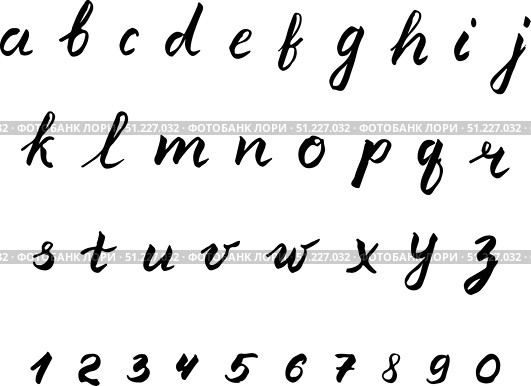 a b c d e f g h i j
ФОТОБАНК ЛОРИ · 51.227.032 · ФОТОБАНК ЛОРИ · 51.227.032 · ФОТОБАНК ЛОРИ
k l m n o p q r
s t u v w x y z
ФОТОБАНК ЛОРИ · 51.227.032 · ФОТОБАНК ЛОРИ · 51.227.032 · ФОТОБАНК ЛОРИ
1 2 3 4 5 6 7 8 9 0